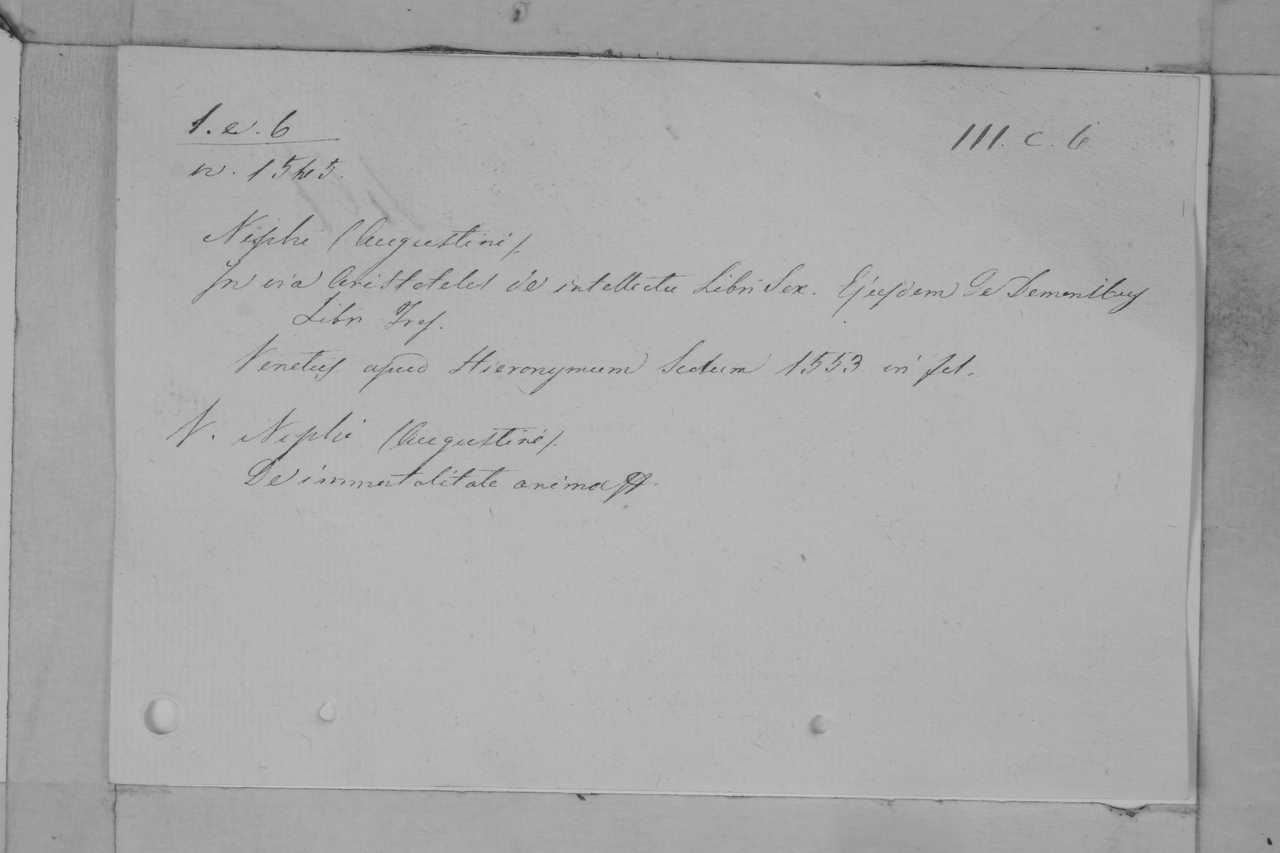 1. e. 6
III. c. 6
n. 1545.
Niphi (Augustini).
In via Aristoteles de intellectu Libri Sex. Ejusdem de Demonibus
Libri Tres.
Venetiis apud Hieronymum Scotum 1553 in fol.
N. Niphi (Augustini).
De immortalitate animae